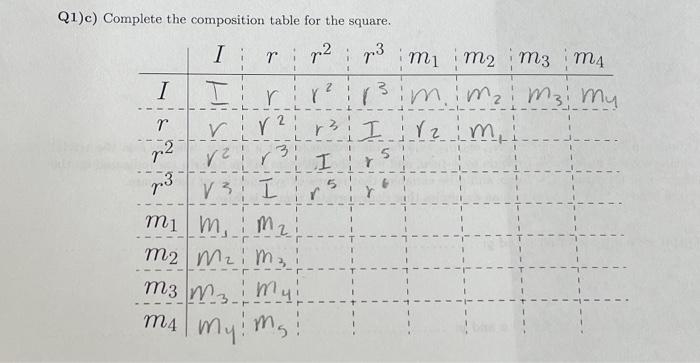 Q1)c) Complete the composition table for the square.
I r r² r³ m₁ m₂ m₃ m₄
I I r r² r³ m. m₂ m₃ m₄
r r r² r³ I r₂ m₁
r² r² r³ I r⁵
r³ r³ I r⁵ r⁶
m₁ m₁ m₂
m₂ m₂ m₃
m₃ m₃ m₄
m₄ m₄ m₅